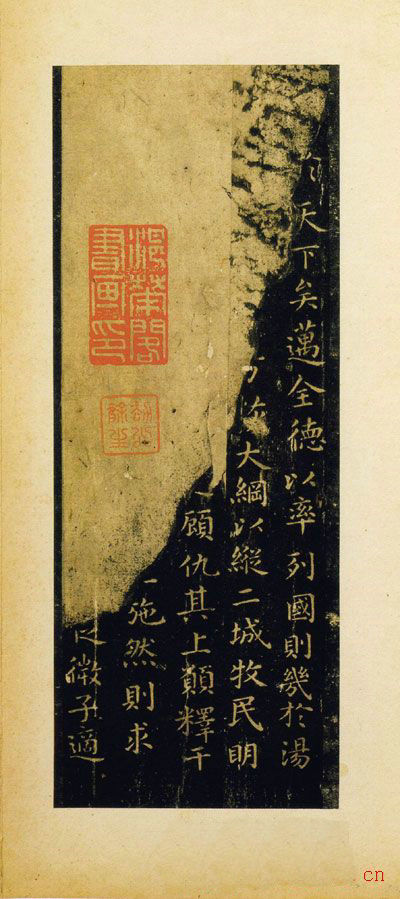 天下矣邁全德以率列國則幾於湯
大綱以縱二城牧民明
顧仇其上願釋干
施然則求
微子適
閣
書畫印
cn